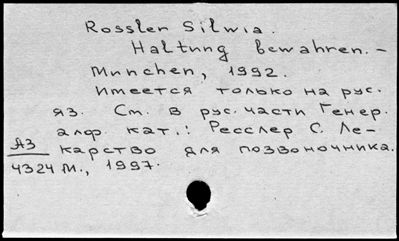 Rossler Silwia.
Haltung bewahren. -
Munchen, 1992.
Имеется только на рус.
яз. См. в рус. части Генер.
алф. кат.: Ресслер С. Ле-
карство для позвоночника.
М., 1997.
АЗ
4324